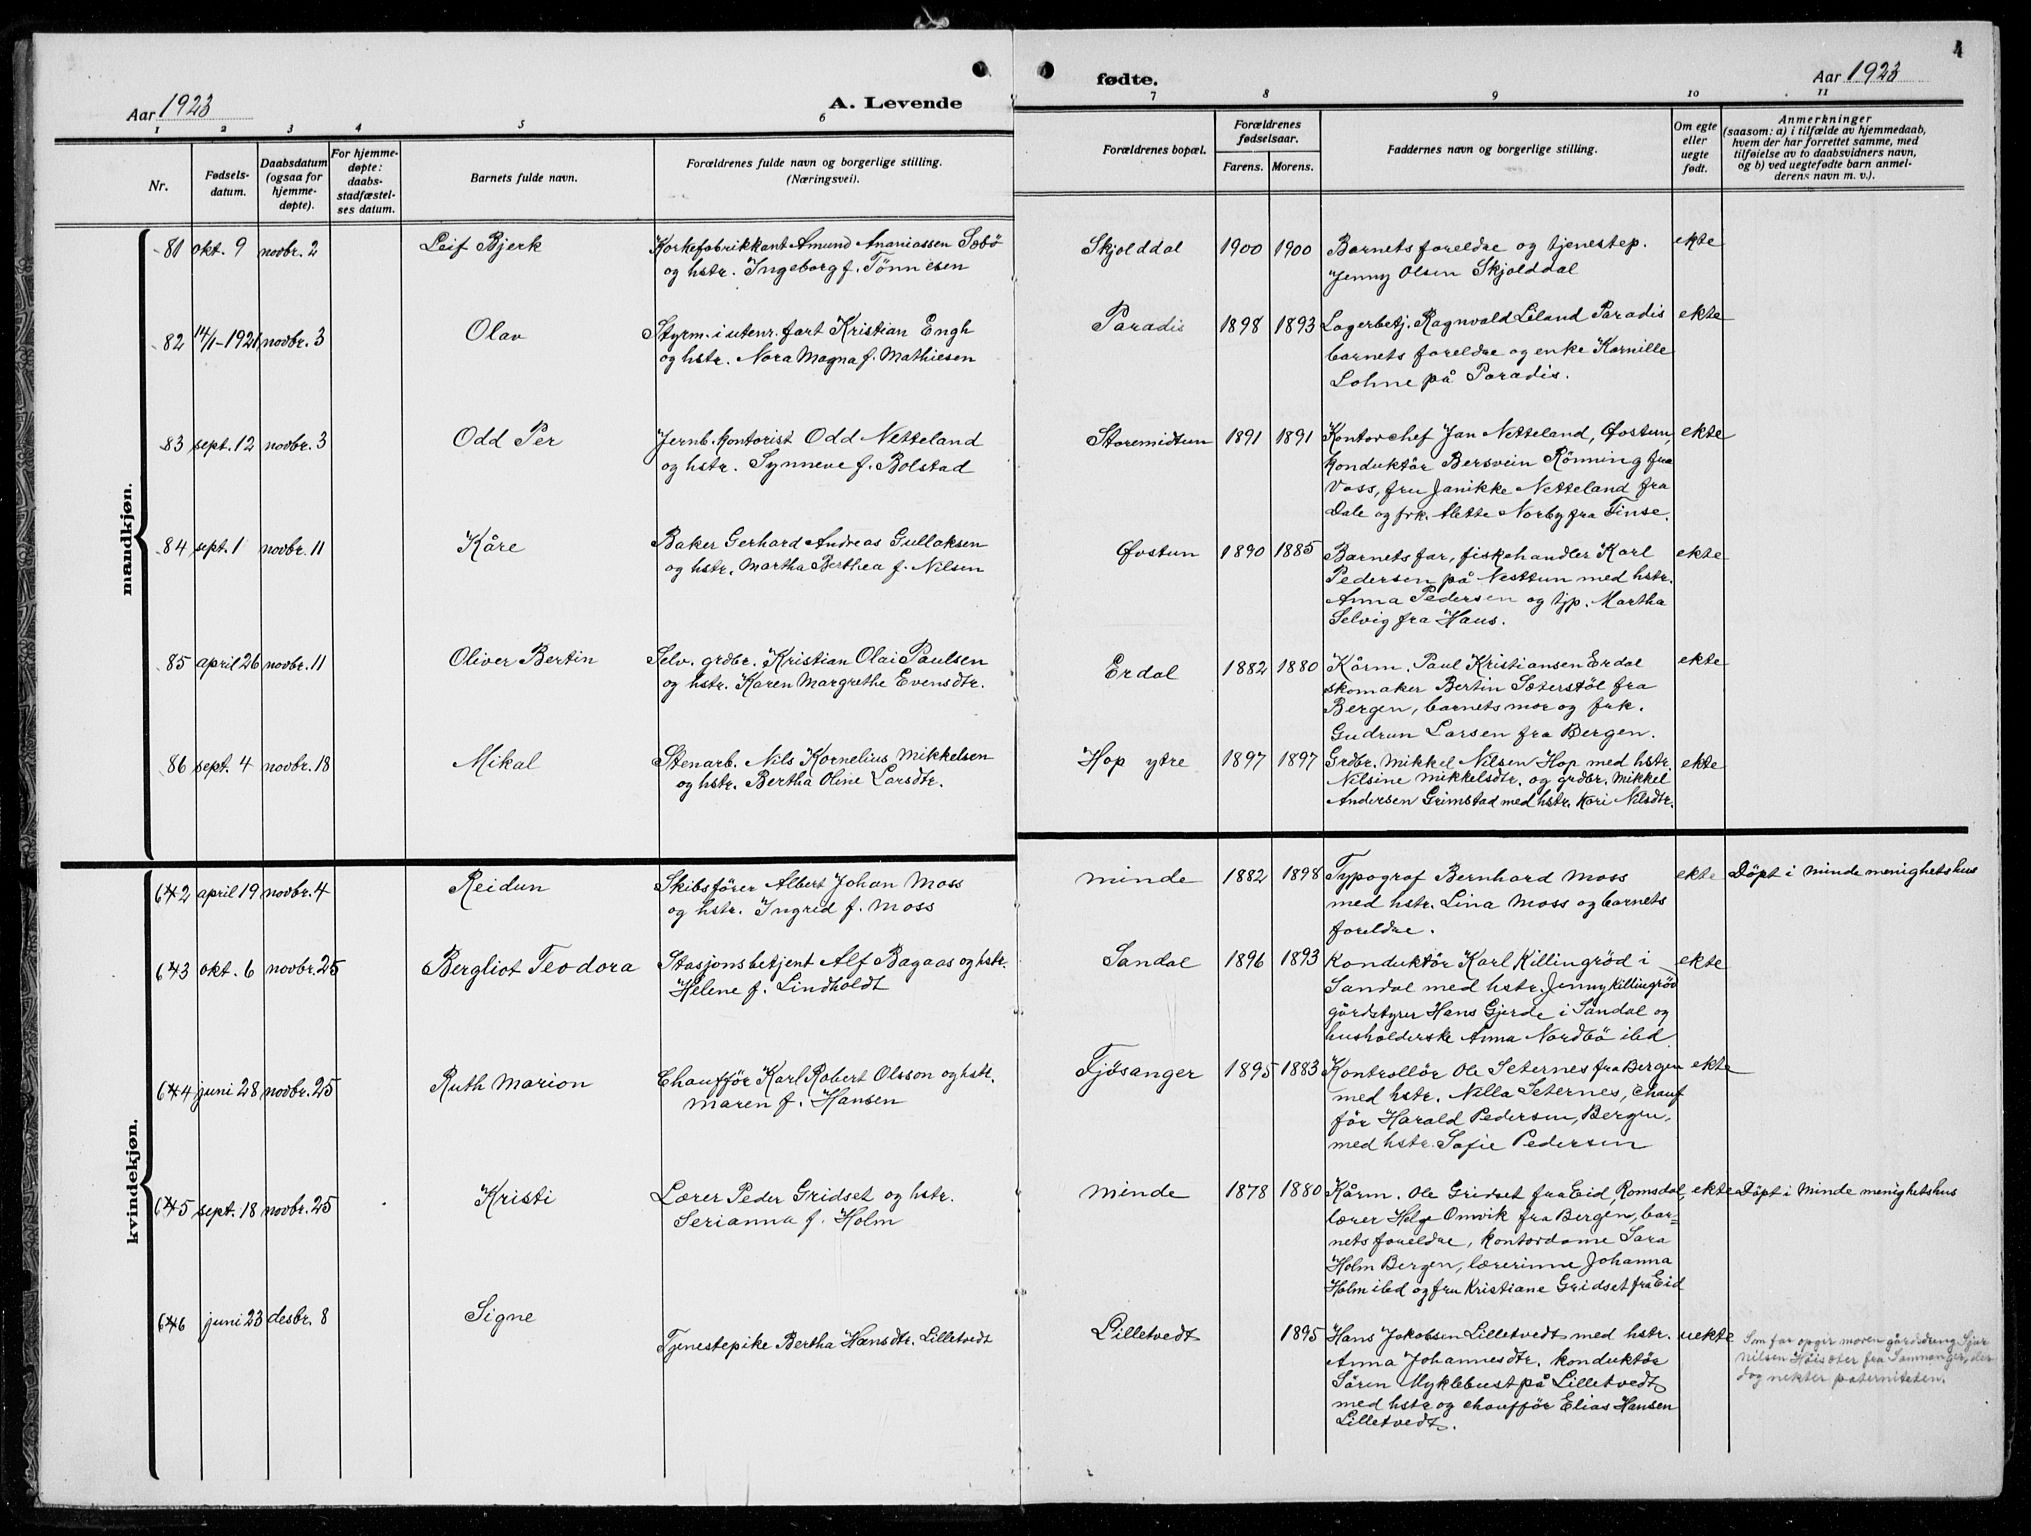 Aar 1923
A. Levende
fødte.
Aar 1923
1 2 3 4 5 6 7 8 9 10 11
Nr.
Fødsels-
datum.
Daabsdatum
(ogsaa for
hjemme-
døpte).
For hjemme-
døpte:
daabs-
stadfæstel-
ses datum.
Barnets fulde navn.
Forældrenes fulde navn og borgerlige stilling.
(Næringsvei).
Forældrenes bopæl.
Forældrenes
fødselsaar.
Farens. Morens.
Faddernes navn og borgerlige stilling.
Om egte
eller
uegte
født.
Anmerkninger
(saasom: a) i tilfælde av hjemmedaab,
hvem der har forrettet samme, med
tilføielse av to daabsvidners navn,
og b) ved uegtefødte barn anmel-
derens navn m. v.).
mandkjøn.
81 okt. 9 novbr. 2 Leif Bjerk
Korkefabrikkant Amund Ananiassen Sæbö
og hstr. Ingeborg f. Tönnesen
Skjolddal 1900 1900
Barnets foreldre og tjenestep.
Jenny Olsen Skjolddal
ekte
82 14/1-1921 novbr. 3 Olav
Styrm. i utenr. fart Kristian Engh
og hstr. Nora Magna f. Mathiesen
Paradis 1898 1893
Lagerbetj. Ragnvald Liland Paradis
barnets foreldre og enke Kornille
Lohne på Paradis.
ekte
83 sept. 12 novbr. 3 Odd Per
Jernb. kontorist Odd Netteland
og hstr. Synneve f. Bolstad
Storemidtun 1891 1891
Kontorchef Jan Netteland, Øvstun,
konduktör Bersvein Rönning fra
Voss, fru Janikke Netteland fra
Dale og frk. Alette Norby fra Finse.
ekte
84 sept. 1 novbr. 11 Kåre
Baker Gerhard Andreas Gullaksen
og hstr. Martha Berthea f. Nilsen
Øvstun 1890 1885
Barnets far, fiskehandler Karl
Pedersen på Nesttun med hstr.
Anna Pedersen og tjp. Martha
Selvig fra Haus.
ekte
85 april 26 novbr. 11 Oliver Bertin
Selv. grdbr. Kristian Olai Paulsen
og hstr. Karen Margrethe Evensdtr.
Erdal 1882 1880
Kårm. Paul Kristiansen Erdal
skomaker Bertin Sæterstöl fra
Bergen, barnets mor og frk.
Gudrun Larsen fra Bergen.
ekte
86 sept. 4 novbr. 18 Mikal
Stenarb. Nils Kornelius Mikkelsen
og hstr. Bertha Oline Larsdtr.
Hop ytre 1897 1897
Grdbr. Mikkel Nilsen Hop med hstr.
Nilsine Mikkelsdtr. og grdbr. Mikkel
Andersen Grimstad med hstr. Kari Nilsdtr.
ekte
kvindekjøn.
642 april 19 novbr. 4 Reidun
Skibsförer Albert Johan Moss
og hstr. Ingrid f. Moss
Minde 1882 1898
Typograf Bernhard Moss
med hstr. Lina Moss og barnets
foreldre.
ekte Döpt i Minde menighetshus
643 okt. 6 novbr. 25 Bergliot Teodora
Stasjonsbetjent Alf Bagaas og hstr.
Helene f. Lindholdt
Sandal 1896 1893
Konduktör Karl Killingröd i
Sandal med hstr. Jenny Killingröd
gårdstyrer Hans Gjerde i Sandal og
husholderske Anna Nordbö ibd
ekte
644 juni 28 novbr. 25 Ruth Marion
Chaufför Karl Robert Olsson og hstr.
Maren f. Hansen
Fjösanger 1895 1883
Kontrollör Ole Seternes fra Bergen
med hstr. Nilla Seternes, chauf
för Harald Pedersen, Bergen,
med hstr. Sofie Pedersen
ekte
645 sept. 18 novbr. 25 Kristi
Lærer Peder Gridset og hstr.
Serianna f. Holm
Minde 1878 1880
Kårm. Ole Gridset fra Eid Romsdal,
lærer Helge Omvik fra Bergen, bar=
nets foreldre, kontordame Sara
Holm Bergen, lærerinne Johanna
Holm ibd og fru Kristiane Gridset fra Eid
ekte Döpt i Minde menighetshus
646 juni 23 desbr. 8 Signe
Tjenestepike Bertha Hansdtr. Lilletvedt
Lilletvedt 1895
Hans Jakobsen Lilletvedt med hstr.
Anna Johannesdtr. konduktör
Sören Myklebust på Lilletvedt
med hstr og chaufför Elias Hansen
Lilletvedt.
uekte
Som far opgir moren gårdsdreng Sjur
Nilsen Höisæter fra Samnanger, der
dog nekter paterniteten.